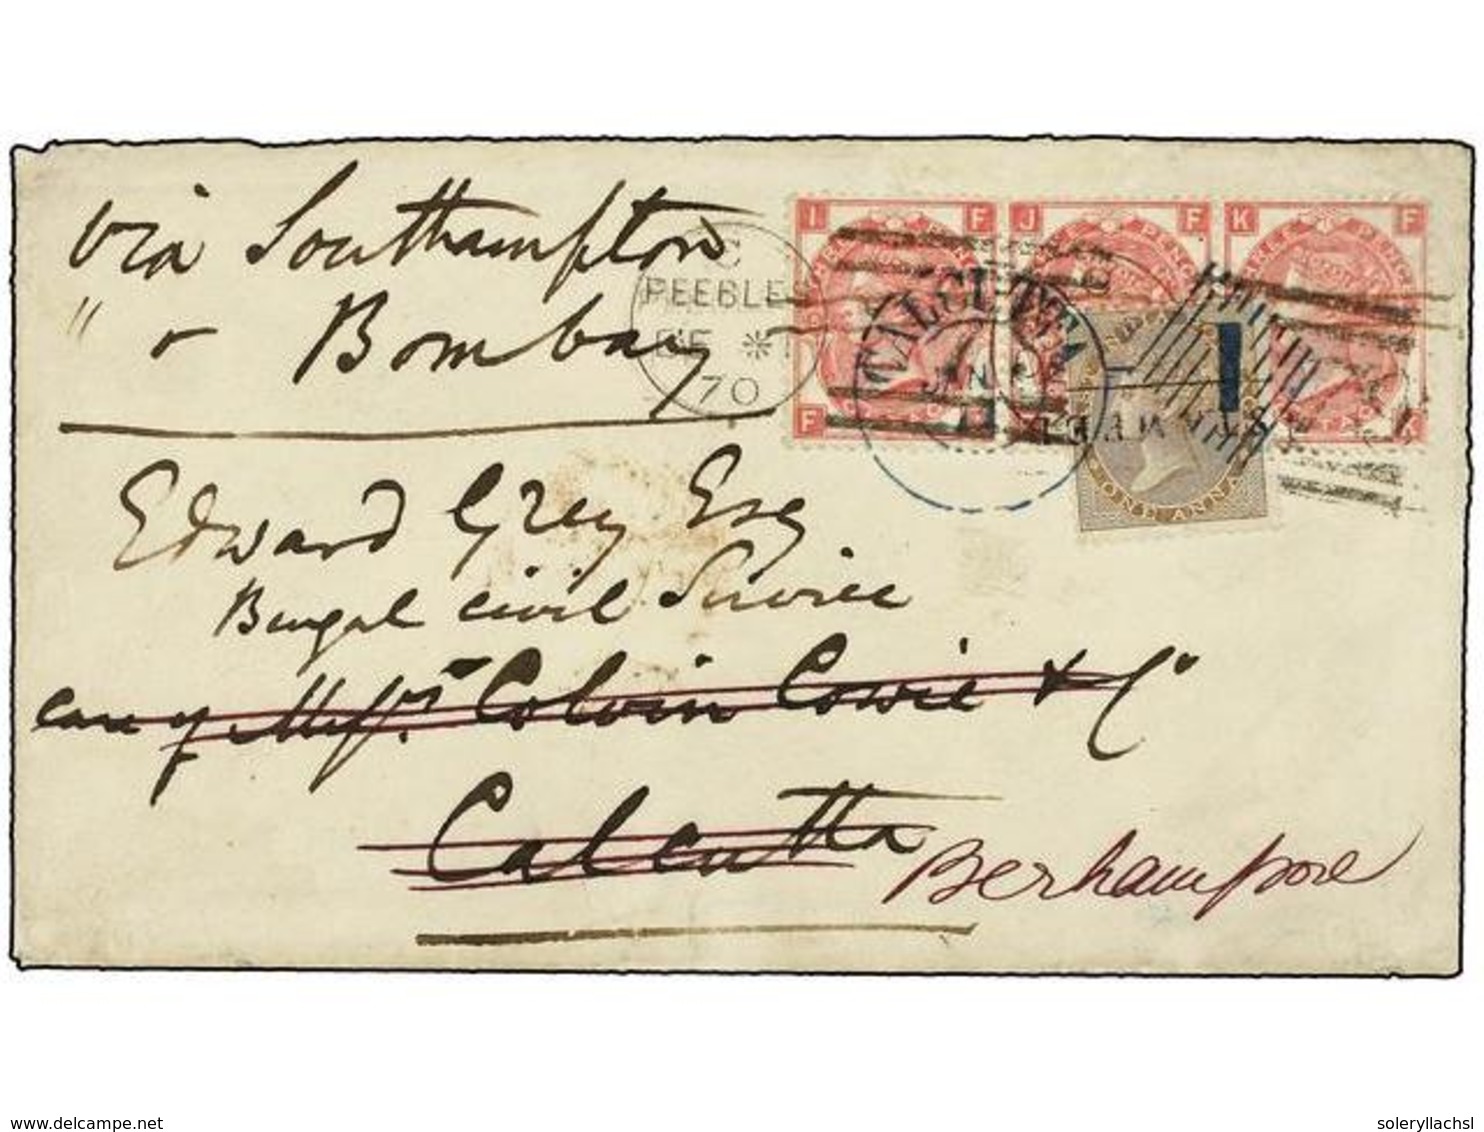 via Southampton
" & Bombay
Edward Grey Esq
Bengal Civil Service
care of Messrs. Colvin Cowie & Co
Calcutta
Berhampore
C
PEEBLES
70
CALCUTTA
JAN
I F
J F
K F
F
K
ONE ANNA
delcampe.net
soleryllachsl